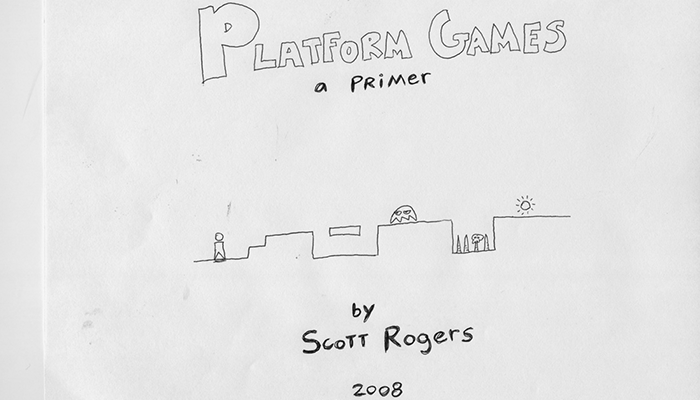 PLATFORM GAMES
a PRiMer
by
SCOTT Rogers
2008